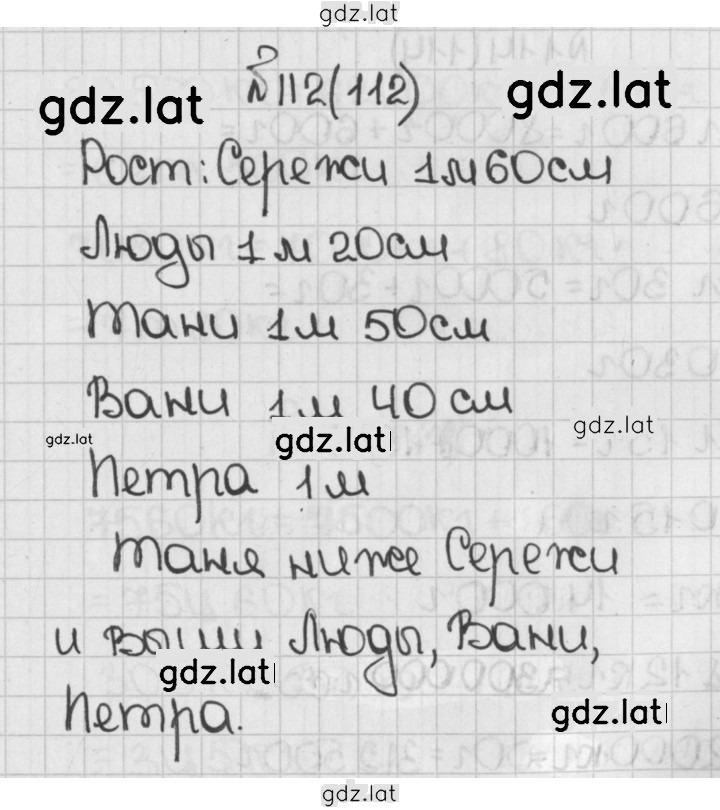 gdz.lat
№112(112)
gdz.lat
gdz.lat
Рост: Сережи 1м 60см
Люды 1м 20см
Тани 1м 50см
Вани 1м 40см
gdz.lat
gdz.lat
gdz.lat
Петра 1м
Таня ниже Сережи
и выши Люды, Вани,
gdz.lat
Петра.
gdz.lat
gdz.lat